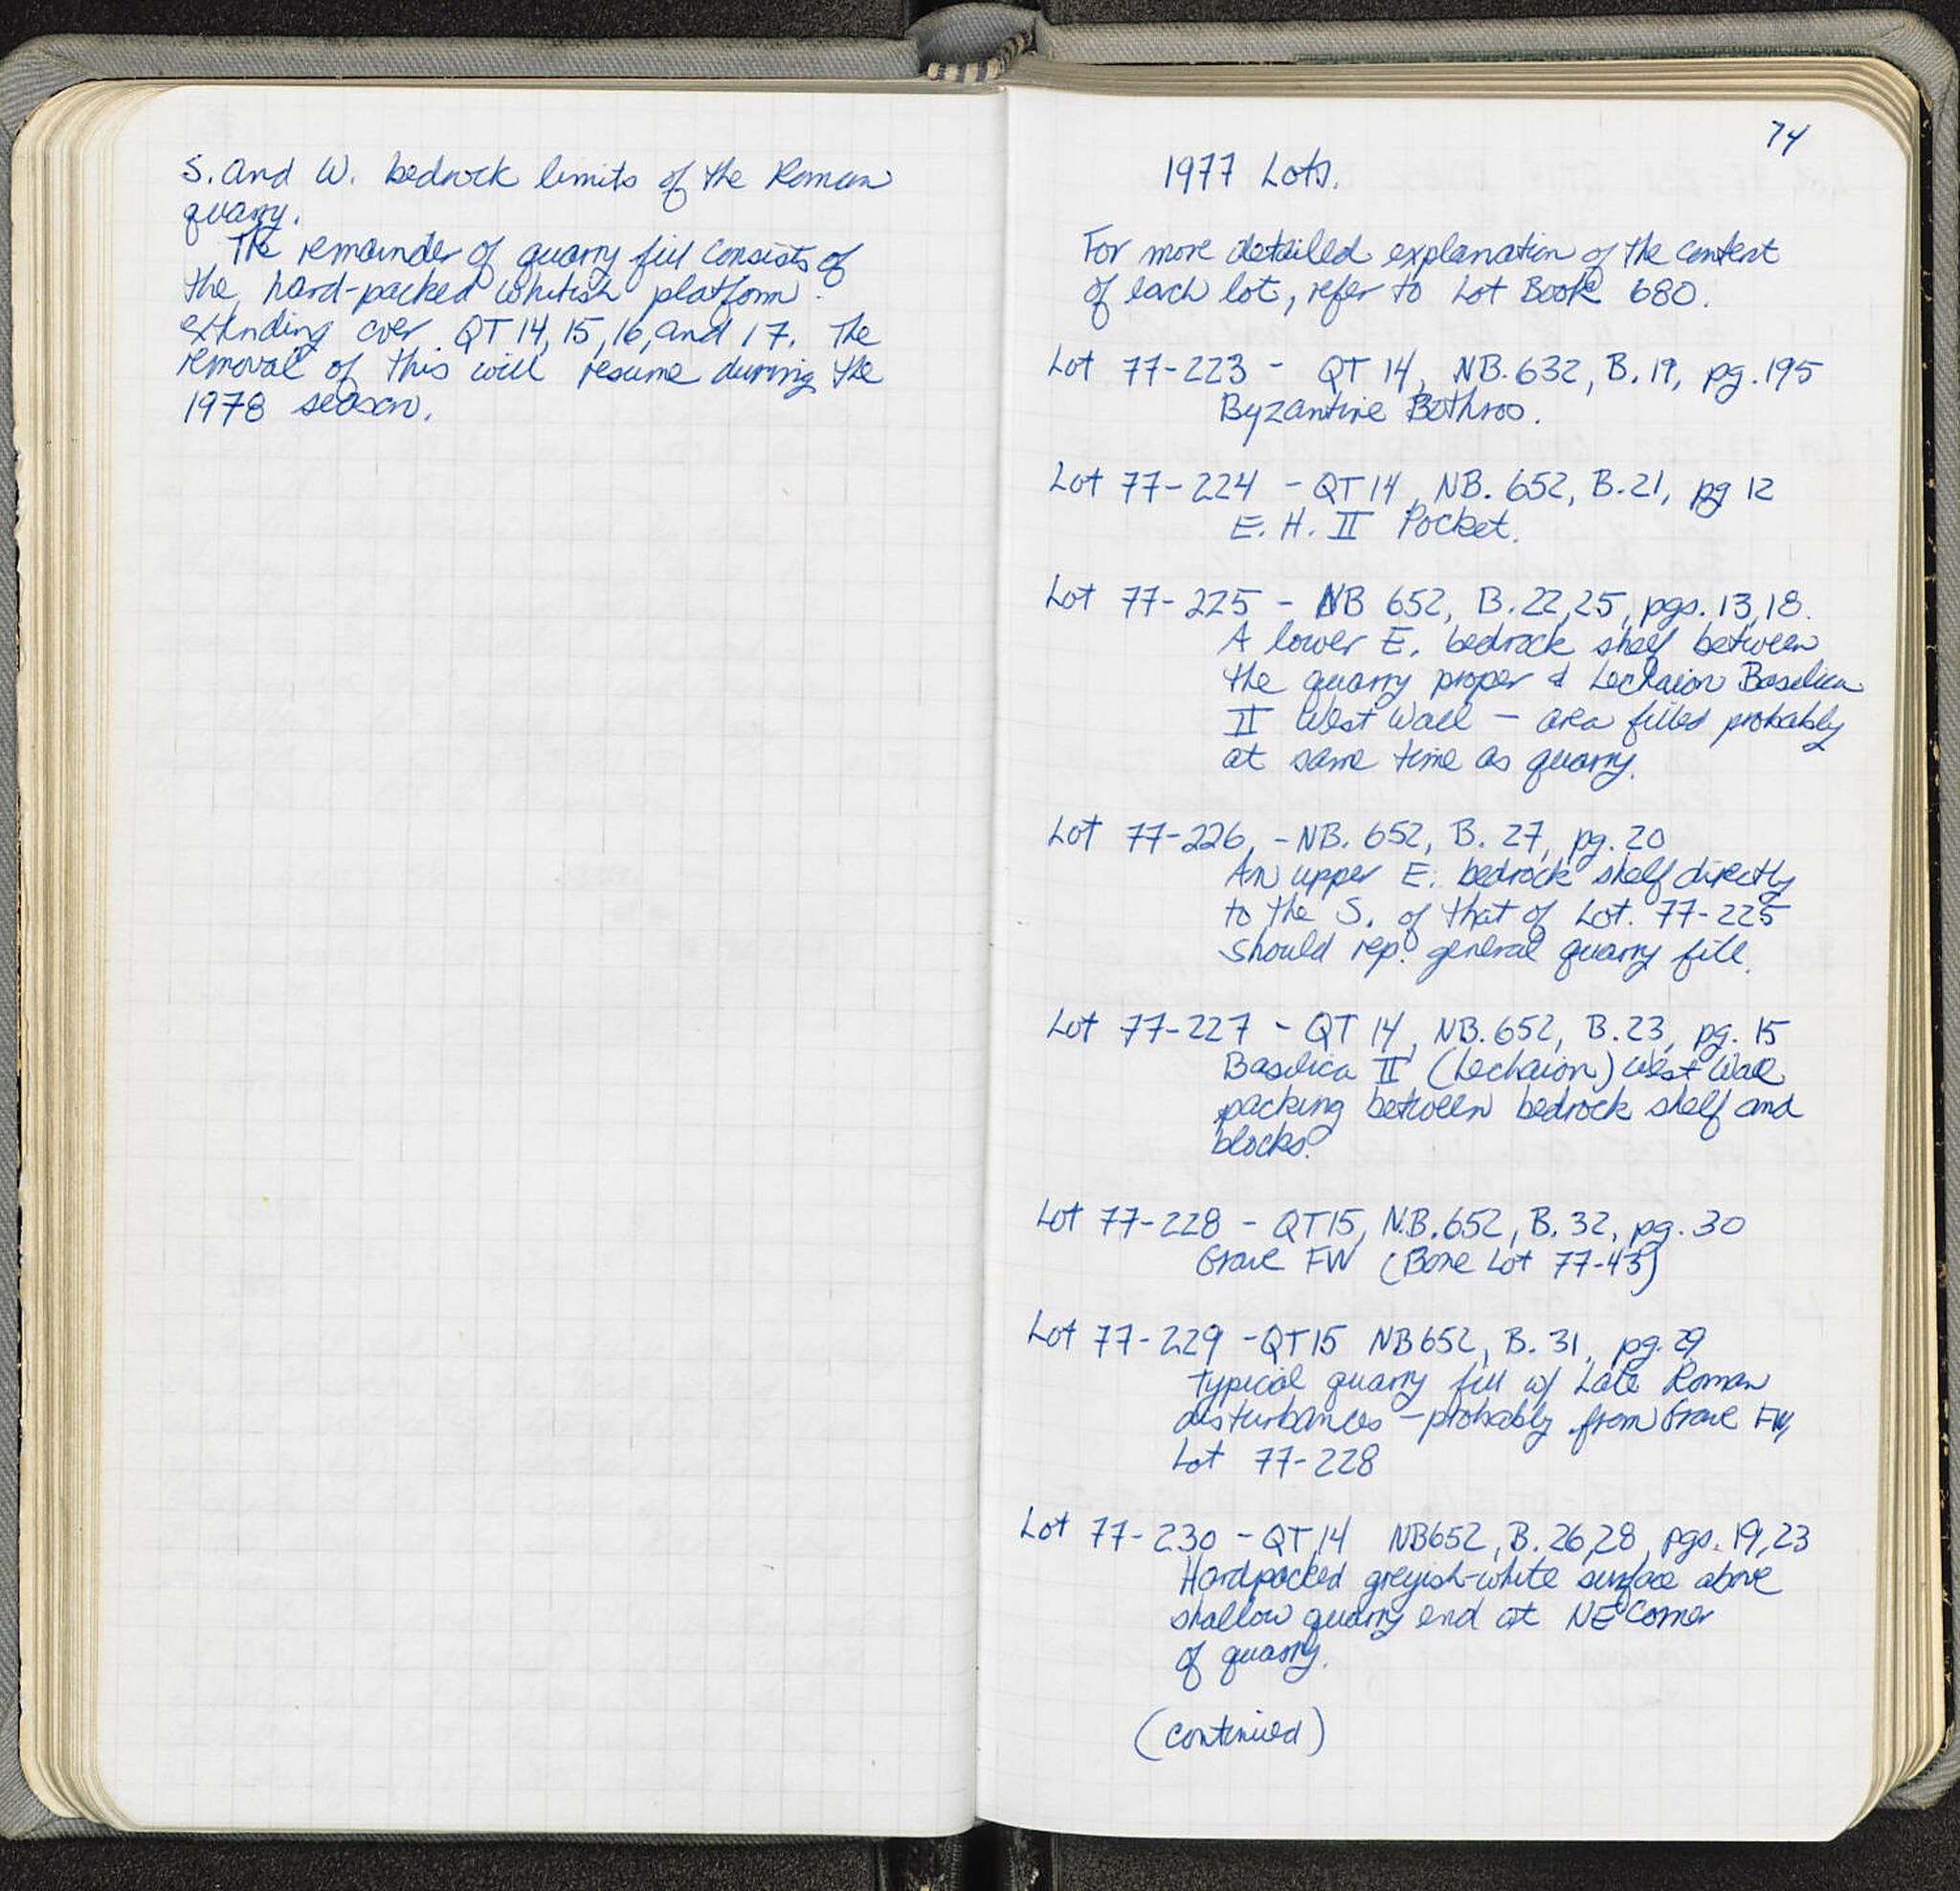 S. and W. bedrock limits of the Roman
quarry.
The remainder of quarry fill consists of
the hard-packed whitish platform
extending over QT 14, 15, 16, and 17. The
removal of this will resume during the
1978 season.
74
1977 Lots.
For more detailed explanation of the content
of each lot, refer to Lot Book 680.
Lot 77-223 - QT 14, NB. 632, B. 19, pg. 195
Byzantine Bothros.
Lot 77-224 - QT 14, NB. 652, B. 21, pg 12
E. H. II Pocket.
Lot 77-225 - NB 652, B. 22, 25, pgs. 13, 18.
A lower E. bedrock shelf between
the quarry proper & Lechaion Basilica
II West Wall - area filled probably
at same time as quarry.
Lot 77-226, - NB. 652, B. 27, pg. 20
An upper E. bedrock shelf directly
to the S. of that of Lot. 77-225
should rep. general quarry fill.
Lot 77-227 - QT 14, NB. 652, B. 23, pg. 15
Basilica II (Lechaion) West Wall
packing between bedrock shelf and
blocks.
Lot 77-228 - QT15, N.B. 652, B. 32, pg. 30
Grave FW (Bone Lot 77-43)
Lot 77-229 - QT15 NB652, B. 31, pg. 29
typical quarry fill w/ Late Roman
disturbances - probably from Grave FW,
Lot 77-228
Lot 77-230 - QT 14 NB652, B. 26, 28, pgs. 19, 23
Hardpacked greyish-white surface above
shallow quarry end at NE corner
of quarry.
(continued)